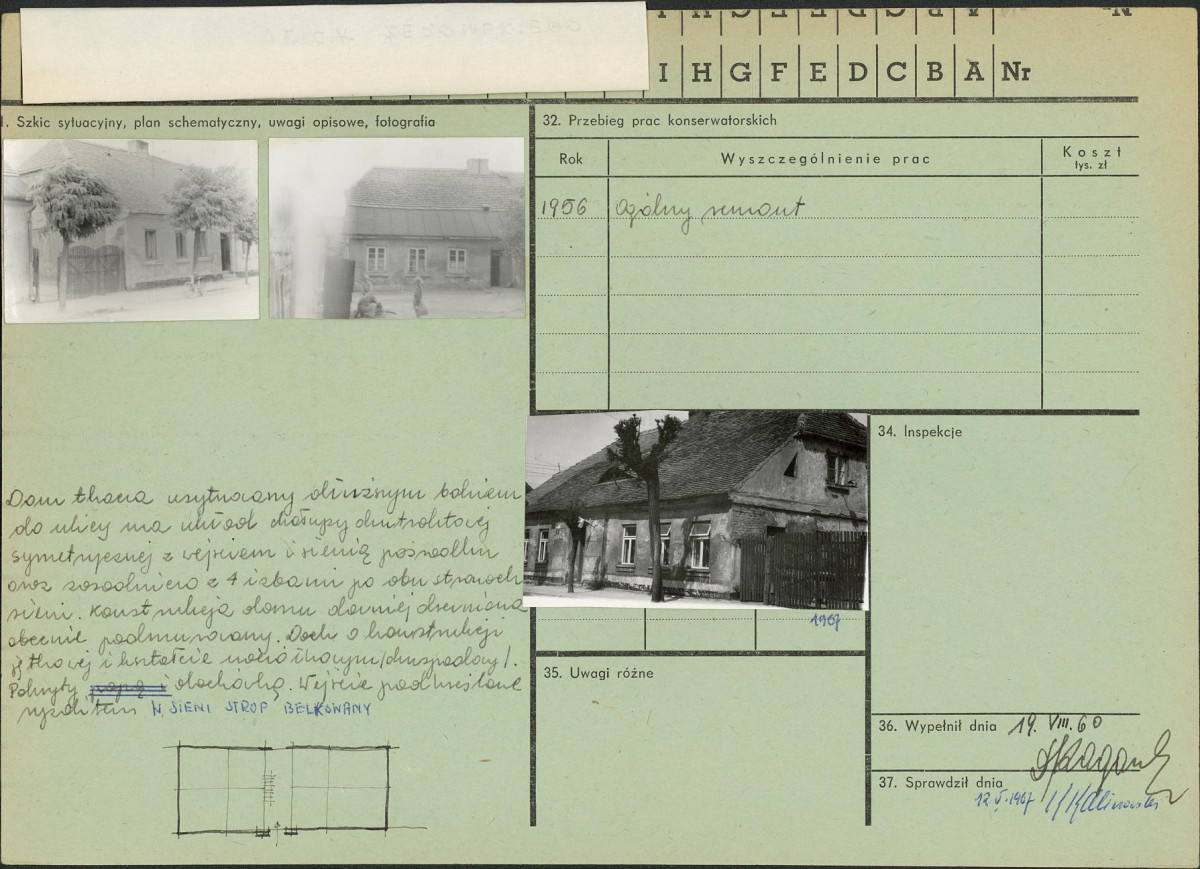 I H G F E D C B A Nr
1. Szkic sytuacyjny, plan schematyczny, uwagi opisowe, fotografia
32. Przebieg prac konserwatorskich
Rok
Wyszczególnienie prac
Koszt
tys. zł
1956
Ogólny remont
Dom tkacza usytuowany dłuższym bokiem
do ulicy ma układ chałupy dwutraktowej
symetrycznej z wejściem i sienią pośrodku
oraz zasadniczo z 4 izbami po obu stronach
sieni. Konstrukcja domu dawniej drewniana
obecnie podmurowany. Dach o konstrukcji
jętkowej i kształcie naczółkowym /dwuspadowy/.
Pokryty papą i dachówką. Wejście podkreślone
ryzalitem W SIENI STROP BELKOWANY
1967
34. Inspekcje
35. Uwagi różne
36. Wypełnił dnia 19. VIII. 60
37. Sprawdził dnia
12.V.1967 Kalinowski